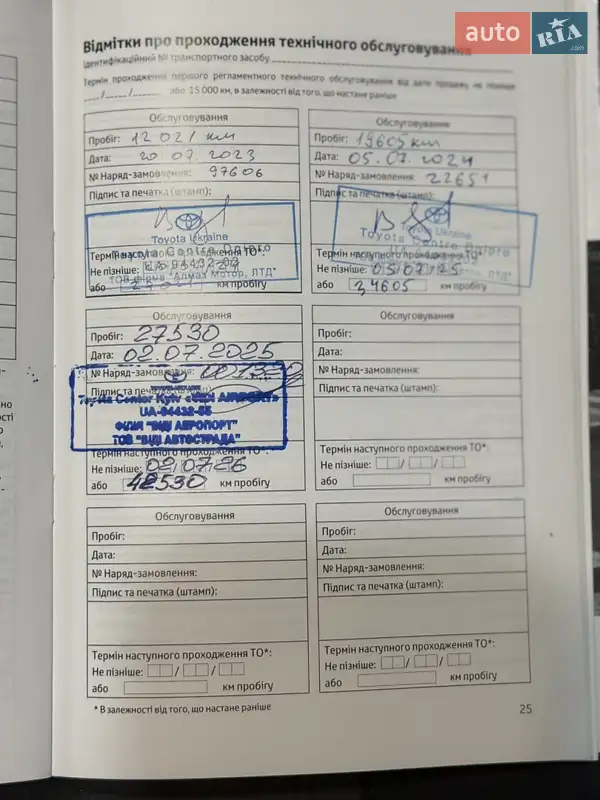 auto RIA .com
Відмітки про проходження технічного обслуговування
Ідентифікаційний № транспортного засобу
Термін проходження першого регламентного технічного обслуговування від дати продажу, не пізніше
__/__/__ або 15 000 км, в залежності від того, що настане раніше
Обслуговування
Пробіг: 12 021 км
Дата: 20.07.2023
№ Наряд-замовлення: 97606
Підпис та печатка (штамп):
Toyota Ukraine
Toyota Centre Dnipro
UA-04432-03
ТОВ фірма "Алмаз Мотор, ЛТД"
Термін наступного проходження ТО*:
Не пізніше:
або км пробігу
Обслуговування
Пробіг: 19605 км
Дата: 05.07.2024
№ Наряд-замовлення: 22651
Підпис та печатка (штамп):
Toyota Ukraine
Toyota Centre Dnipro
Термін наступного проходження ТО*:
Не пізніше: 05/07/25
або 34605 км пробігу
Обслуговування
Пробіг: 27530
Дата: 02.07.2025
№ Наряд-замовлення:
Підпис та печатка (штамп):
Toyota Center Kyiv «VIDI AIRPORT»
UA-04432-55
ФІЛІЯ "ВІДІ АЕРОПОРТ"
ТОВ "ВІДІ АВТОСТРАДА"
Термін наступного проходження ТО*:
Не пізніше: 02/07/26
або 42530 км пробігу
Обслуговування
Пробіг:
Дата:
№ Наряд-замовлення:
Підпис та печатка (штамп):
Термін наступного проходження ТО*:
Не пізніше: / /
або км пробігу
Обслуговування
Пробіг:
Дата:
№ Наряд-замовлення:
Підпис та печатка (штамп):
Термін наступного проходження ТО*:
Не пізніше: / /
або км пробігу
Обслуговування
Пробіг:
Дата:
№ Наряд-замовлення:
Підпис та печатка (штамп):
Термін наступного проходження ТО*:
Не пізніше: / /
або км пробігу
* В залежності від того, що настане раніше
25